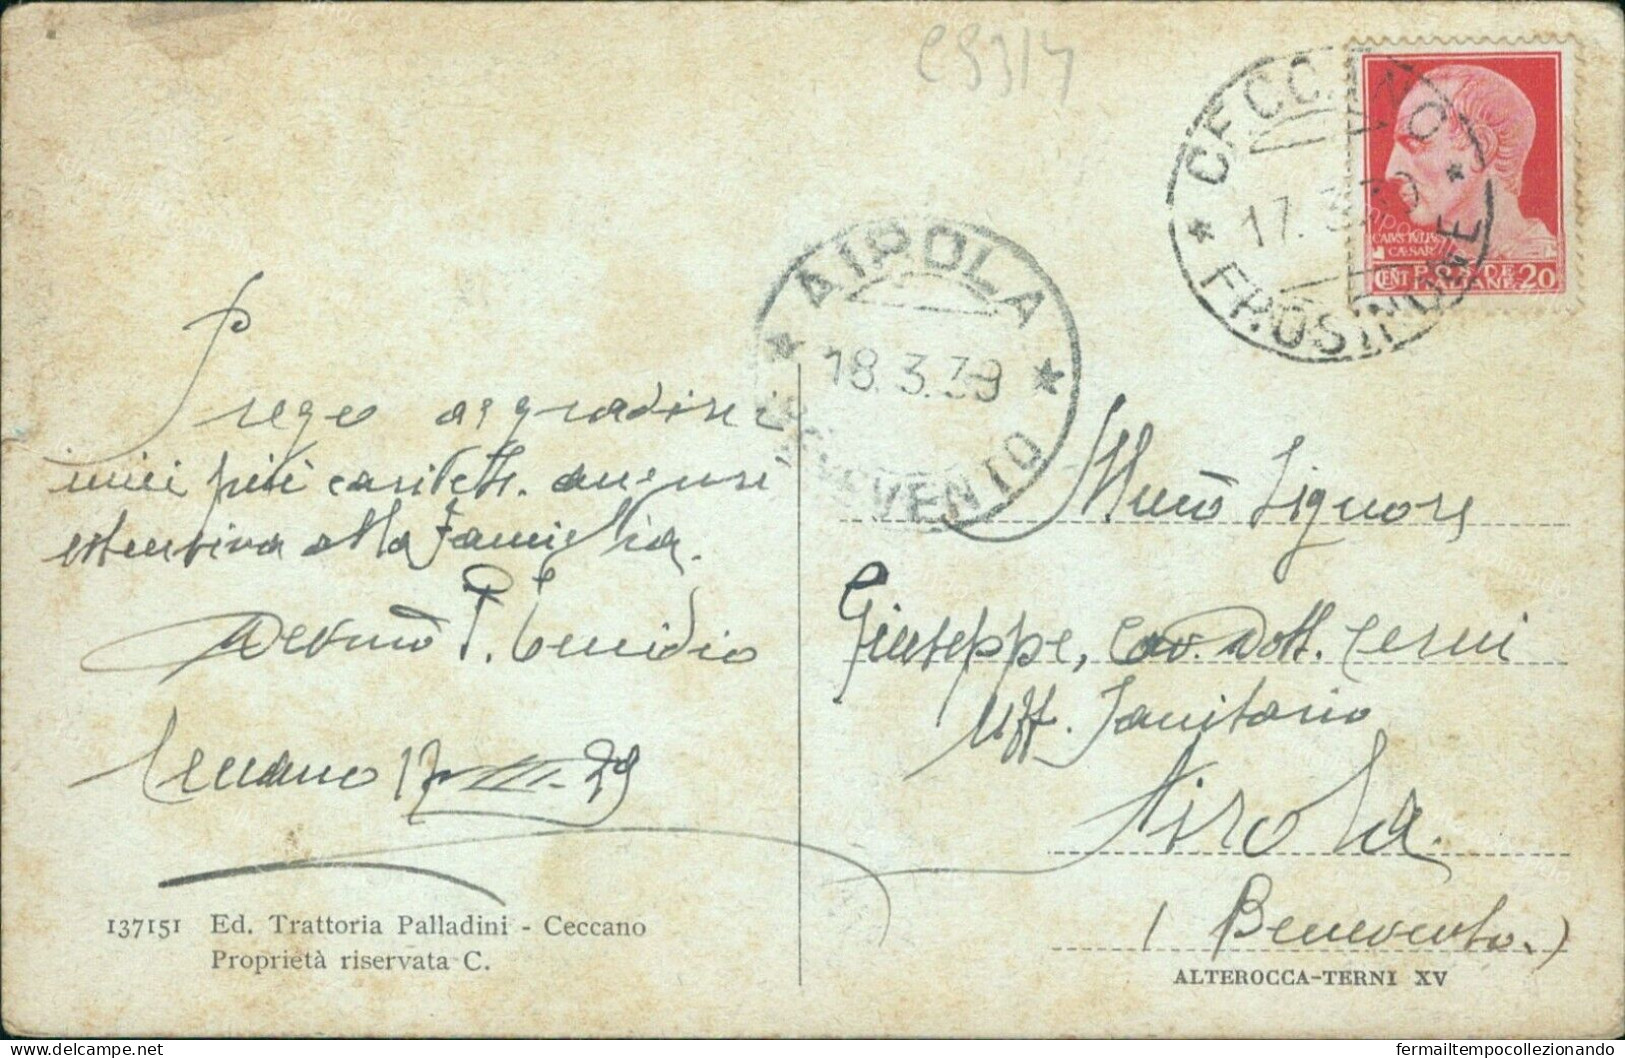 e9314
CECCANO
17.3.39
FROSINONE
CAIVS IVLIVS
CAESAR
CENT POSTE ITALIANE 20
AIROLA
18.3.39
BENEVENTO
Prego di gradire i
miei più car auguri
estensiva alla Famiglia.
Ceccano 17-III-39
137151 Ed. Trattoria Palladini - Ceccano
Proprietà riservata C.
Signore
Giuseppe, Cav. Dott. Cerni
Uff. Sanitario
Airola
(Benevento.)
ALTEROCCA-TERNI XV
https://www.delcampe.net
fermailtempocollezionando